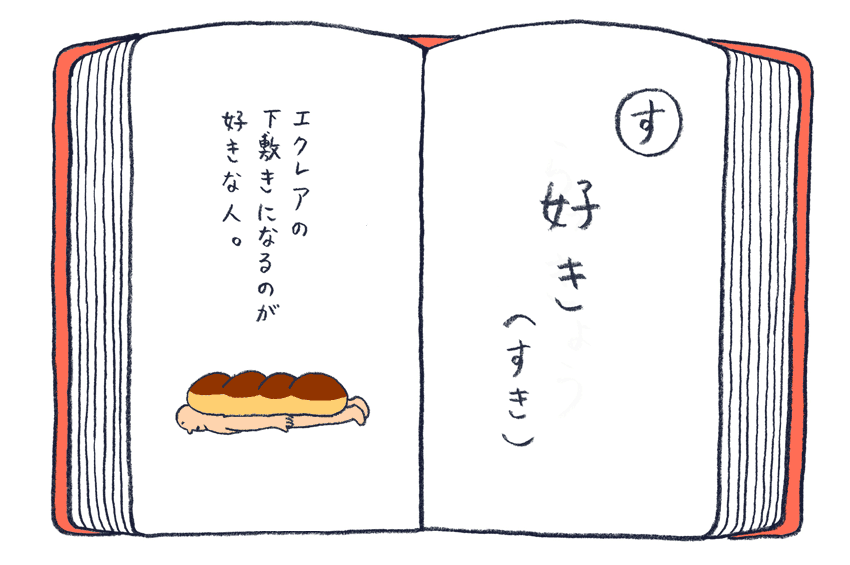 す
好き
（すき）
エクレアの
下敷きになるのが
好きな人。